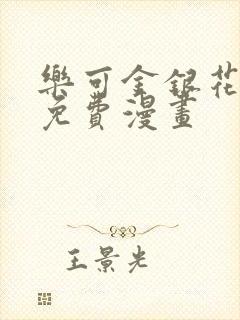 樂可金銀花
免費漫畫
王景光